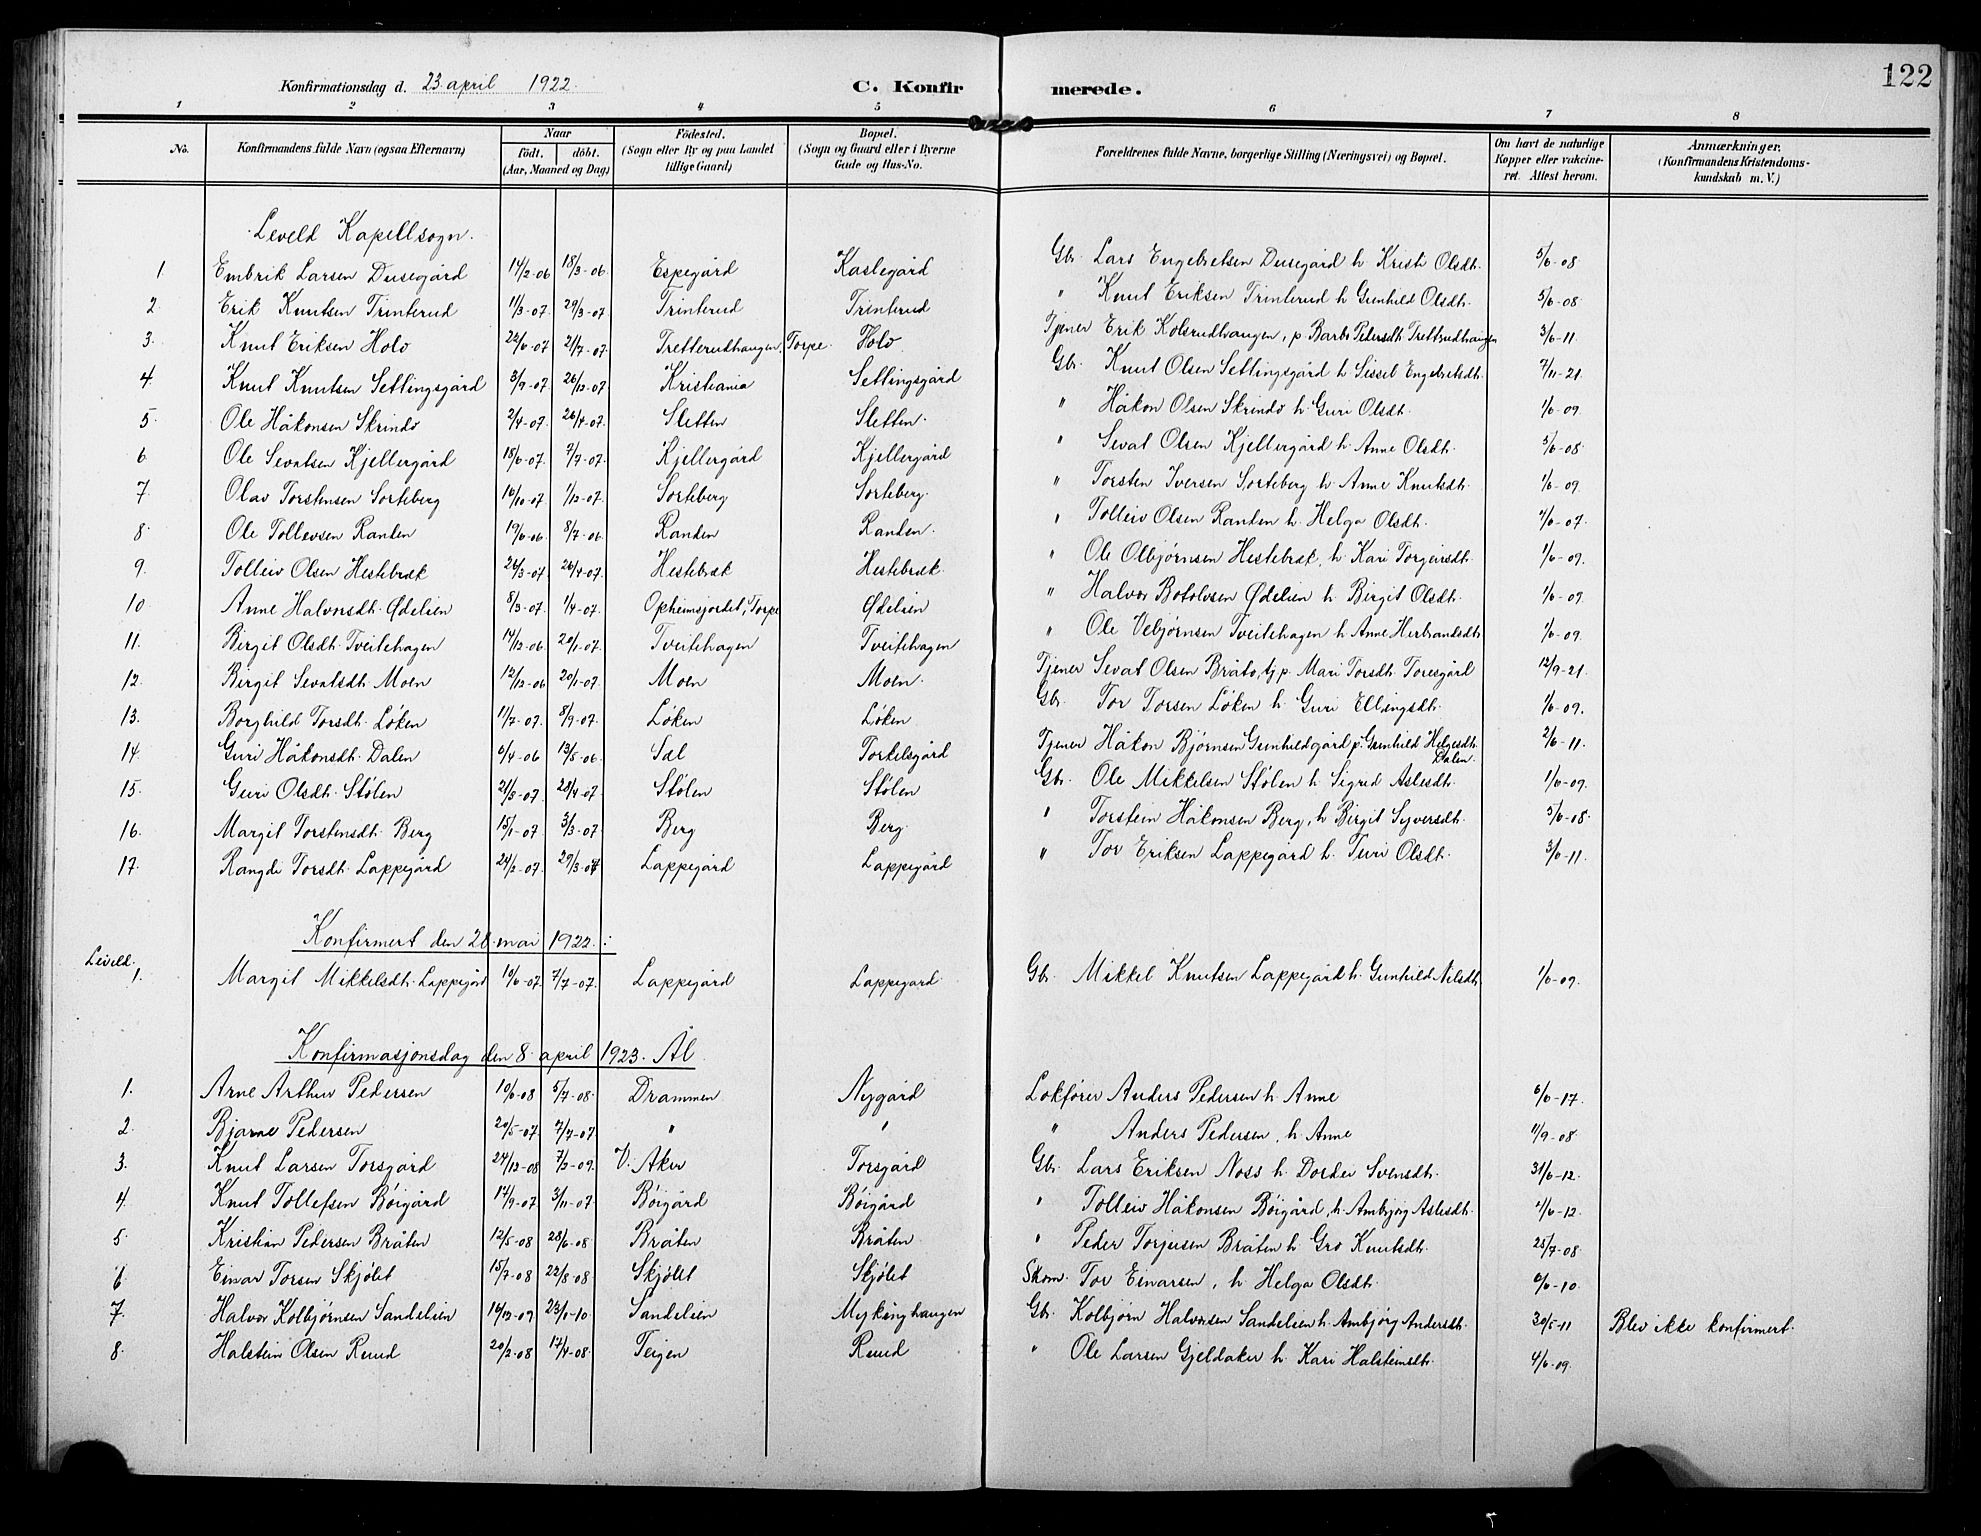 Konfirmationsdag d. 23 april 1922. C. Konfirmerede. 122
1 2 3 4 5 6 7 8
No. Konfirmandens fulde Navn (ogsaa Efternavn) Naar födt. döbt. (Aar, Maaned og Dag) Födested. (Sogn eller By og paa Landet tillige Gaard) Bopæl. (Sogn og Gaard eller i Byerne Gade og Hus-No. Forældrenes fulde Navne, borgerlige Stilling (Næringsvei) og Bopæl. Om havt de naturlige Kopper eller vakcineret. Attest herom. Anmærkninger. (Konfirmandens Kristendomskundskab m. V.)
Leveld Kapellsogn.
1. Embrik Larsen Dusegård 14/2-06 18/3-06. Espegård Kaslegård Gbr. Lars Engebretsen Dusegård h Kristi Olsdt. 5/6-08
2 Erik Knutsen Trinterud 11/3-07. 29/3-07 Trinterud Trinterud " Knut Eriksen Trinterud h Gunhild Olsdt. 5/6-08.
3. Knut Eriksen Holo 22/6-07 21/7-07. Tretterudhaugen, Torpe. Holo Tjener Erik Kolsrudhaugen, p. Barbo Pedersdt. Trettrudhaugen 3/6-11.
4. Knut Knutsen Settingsgård 3/9-07. 26/12-07 Kristiania Settingsgård Gbr. Knut Olsen Settingsgård h Sissel Engebretsdt. 7/11-21
5. Ole Håkonsen Skrindo 2/4-07. 26/4-07. Sletten Sletten. " Håkon Olsen Skrindo h. Guri Olsdt. 1/6-09.
6 Ole Sevatsen Kjellergård 18/6-07. 7/7-07. Kjellergård Kjellergård " Sevat Olsen Kjellergård h. Anne Olsdt. 5/6-08
7. Olav Torstensen Sorteberg 16/10-07 1/12-07. Sorteberg Sorteberg. " Torsten Iversen Sorteberg h. Anne Knutsdt. 1/6-09.
8. Ole Tollevsen Ranten 19/6-06. 8/7-06. Randen Randen. " Tolleiv Olsen Ranten h. Helga Olsdt. 4/6-07.
9. Tolleiv Olsen Hestebræk 26/3-07. 26/4-07. Hestebræk Hestebræk. " Ole Olbjørnsen Hestebræk, h. Kari Torgeirsdt. 1/6-09.
10 Anne Halvorsdt. Ødelien 8/3-07. 1/4-07. Opheimsjordet, Torpe Ødelien " Halvor Botolvsen Ødelien h. Birgit Olsdt. 1/6-09.
11. Birgit Olsdt. Tveitehagen 14/12-06 20/1-07. Tveitehagen Tveitehagen " Ole Vebjørnsen Tveitehagen h Anne Herbrandsdt. 1/6-09.
12. Birgit Sevatsdt. Moen 12/12-06 20/1-07. Moen Moen. Tjener Sevat Olsen Bråto, tj p. Mari Torsdt. Toresgård 12/9-21
13. Borghild Torsdt. Løken 11/7-07. 8/9-07. Løken Løken. Gbr. Tor Torsen Løken h Guri Ellingsdt. 1/6-09.
14 Guri Håkonsdt. Dalen 6/4-06 13/5-06. Sal Torkelsgård Tjener Håkon Bjørnsen Gunhildgård p. Gunhild Helgesdt. Dalen. 2/6-11.
15. Guri Olsdt. Stølen 21/3-07. 28/4-07. Stølen Stølen Gbr. Ole Mikkelsen Stølen h Sigrid Aslesdt. 1/6-09.
16. Margit Torstensdt. Berg 15/1-07 3/3-07. Berg Berg. " Torstein Håkonsen Berg, h Birgit Syversdt. 5/6-08.
17. Rangdi Torsdt. Lappegård 24/2-07. 29/3-07 Lappegård Lappegård " Tor Eriksen Lappegård h. Turi Olsdt. 3/6-11.
Konfirmert den 28. mai 1922. :
Leveld.
1. Margit Mikkelsdt. Lappegård 10/6-07. 7/7-07. Lappegård Lappegård Gbr. Mikkel Knutsen Lappegård h. Gunhild Nilsdt. 1/6-09.
Konfirmasjonsdag den 8. april 1923. Ål.
1. Arne Arthur Pedersen 10/6-08 5/7-08. Drammen Nygård Lokfører Anders Pedersen h. Anne 6/6-17.
2. Bjarne Pedersen 20/5-07. 7/7-07. " " " Anders Pedersen, h. Anne 11/9-08.
3. Knut Larsen Torsgård 24/12-08 7/2-09. V. Aker Torsgård Gbr. Lars Eriksen Noss h. Dordei Svensdt. 31/6-12.
4. Knut Tollefsen Bøigård 14/9-07 3/11-07. Bøigård Bøigård " Tolleiv Håkonsen Bøigård, h. Ambjørg Aslesdt. 4/6-12.
5. Kristian Pedersen Bråten 12/5-08 28/6-08. Bråten Bråten " Peder Torjusen Bråten h. Gro Knutsdt. 25/7-08.
6. Einar Torsen Skjølet 15/7-08 22/8-08 Skjølet Skjølet Skom. Tor Einarsen, h. Helga Olsdt. 6/6-10.
7. Halvor Kolbjørnsen Sandelien 16/12-09 23/1-10. Sandelien Mykinghaugen Gbr. Kolbjørn Halvorsen Sandelien h. Ambjørg Andersdt. 30/5-11 Blev ikke konfirmert.
8. Halstein Olsen Ruud 20/2-08 17/4-08. Teigen Ruud " Ole Larsen Gjeldaker h. Kari Halsteinsdt. 4/6-09.